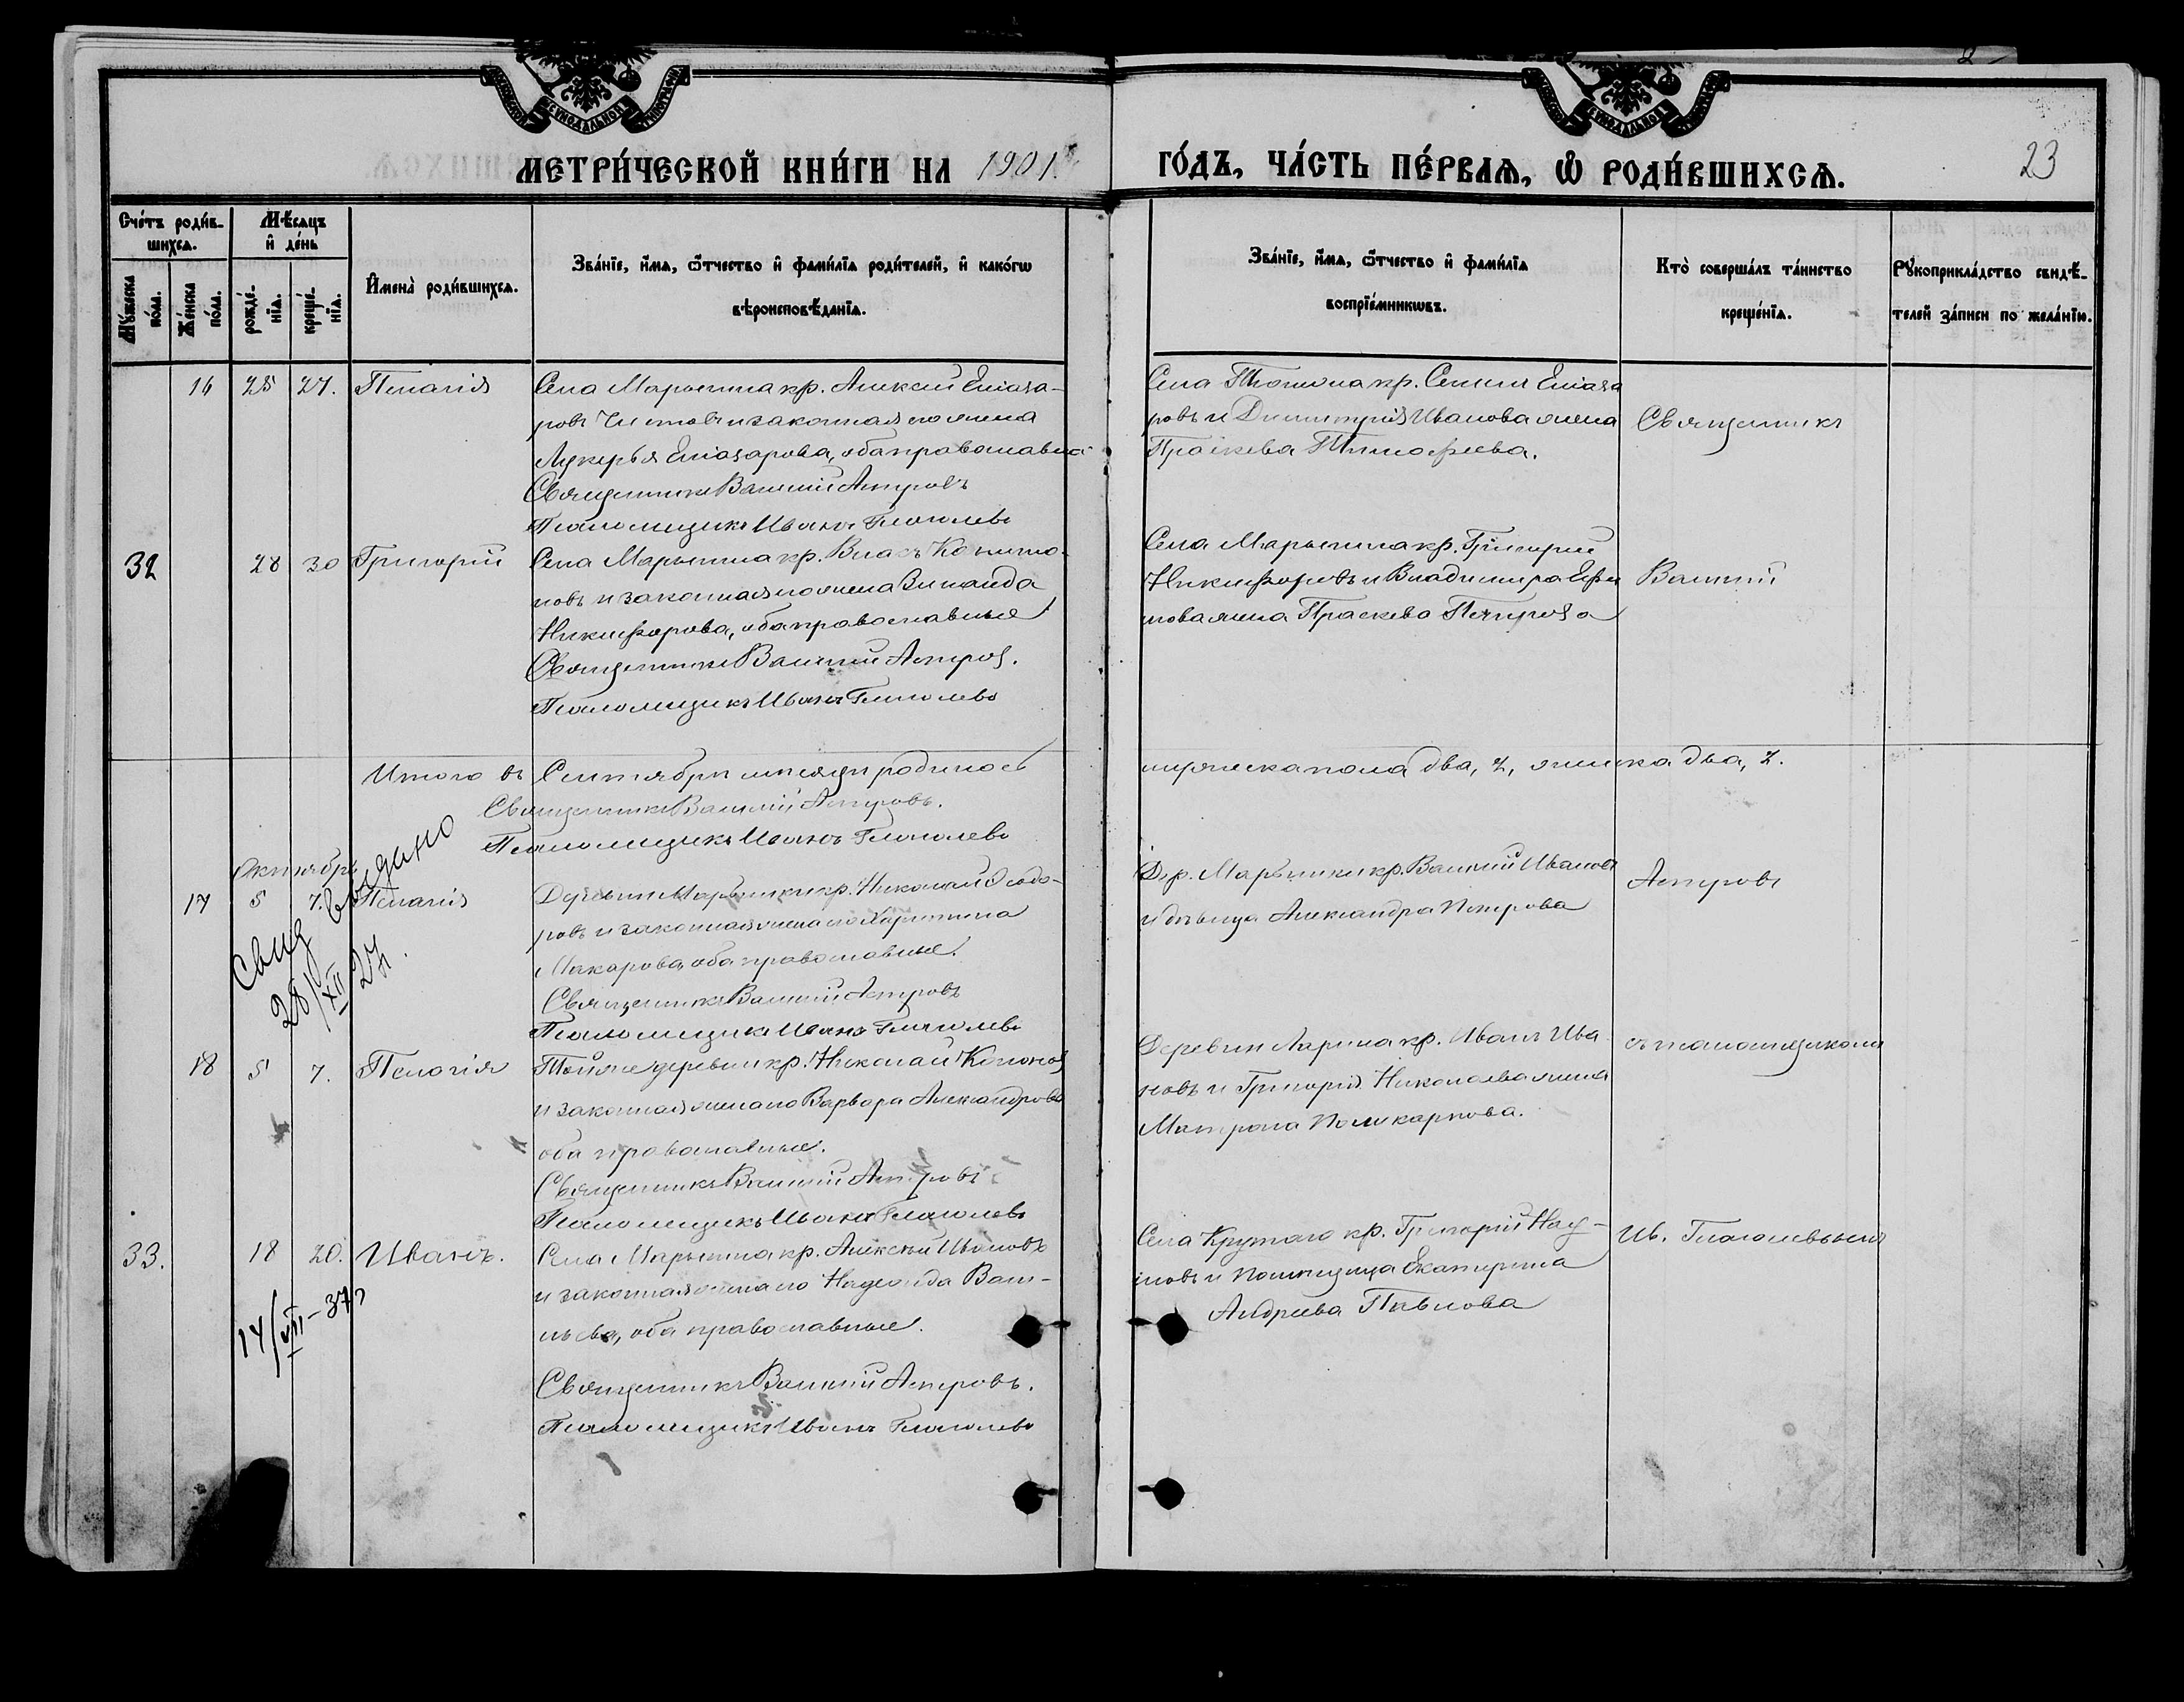 МЕТРИ́ЧЕСКОЙ КНИ́ГИ НА 1901 ГО́ДЪ, ЧА́СТЬ ПЕ́РВАЯ, Ѡ РОДИ́ВШИХСЯ.
23
Сче́тъ роди́в-
шихся.
Мѣ́сяцъ
и де́нь
Му́жеска
по́ла.
Же́нска
по́ла.
рожде́-
нїя.
креще́-
нїя.
Имена̀ роди́вшихся.
Зва́нїе, и́мя, ѻ́тчество и фами́лїа роди́телей, и како́гѡ
вѣроисповѣ́данїя.
Зва́нїе, и́мя, ѻ́тчество и фами́лїа
воспрїе́мникѡвъ.
Кто̀ соверша́лъ та́инство
креще́нїя.
Рꙋкоприкла́дство свидѣ́-
телей за́писи по жела́нїю.
16 25 27. Пелагія
Села Марьина кр. Алексій Елиаза-
ровъ и законная его жена
Лукерья Елиазарова, оба православные
Священникъ Василій Аетровъ
Псаломщикъ Иванъ Глаголевъ
Села кр. Елиаза
ровъ и Димитрія Иванова жена
Праскева Тимофеева.
Священникъ
32 28 30 Григорій
Села Марьина кр. Власъ
новъ и законная его жена Зинаида
Никифорова, оба православные
Священникъ Василій
Псаломщикъ Иванъ Глаголевъ
Села Марьина кр. Григорій
Никифоровъ и Владимира Ефи
мова жена Праскева Петрова
Василій
Итого въ Сентябрѣ мѣсяцѣ родилось мужеска пола два, 2, женска два, 2.
Священникъ Василій
Псаломщикъ Иванъ Глаголевъ
Октябрь
17 5 7. Пелагія
Деревни кр. Николай Ѳеодо-
ровъ и законная жена его Харитина
Макарова, оба православные.
Священникъ Василій
Псаломщикъ Иванъ Глаголевъ
Дер. кр. Василій Ивановъ
и дѣвица Александра Петрова
свид выдано
28/XII 27г.
18 5 7. Пелагія
Той же деревни кр. Николай Кононовъ
и законная жена его Варвара Александрова
оба православные.
Священникъ Василій
Псаломщикъ Иванъ Глаголевъ
Деревни Ларина кр. Иванъ Ива
новъ и Григорія Николаева жена
Матрона Поликарпова.
съ псаломщикомъ
33. 18 20. Иванъ.
Села Марьина кр. Алексѣй Ивановъ
и законная жена его Надежда Васи-
льева, оба православные.
Священникъ Василій
Псаломщикъ Иванъ Глаголевъ
Села Крутаго кр. Григорій Нау-
мовъ и Екатерина
Андреева Павлова
Ив. Глаголевымъ
14/VIII-37г